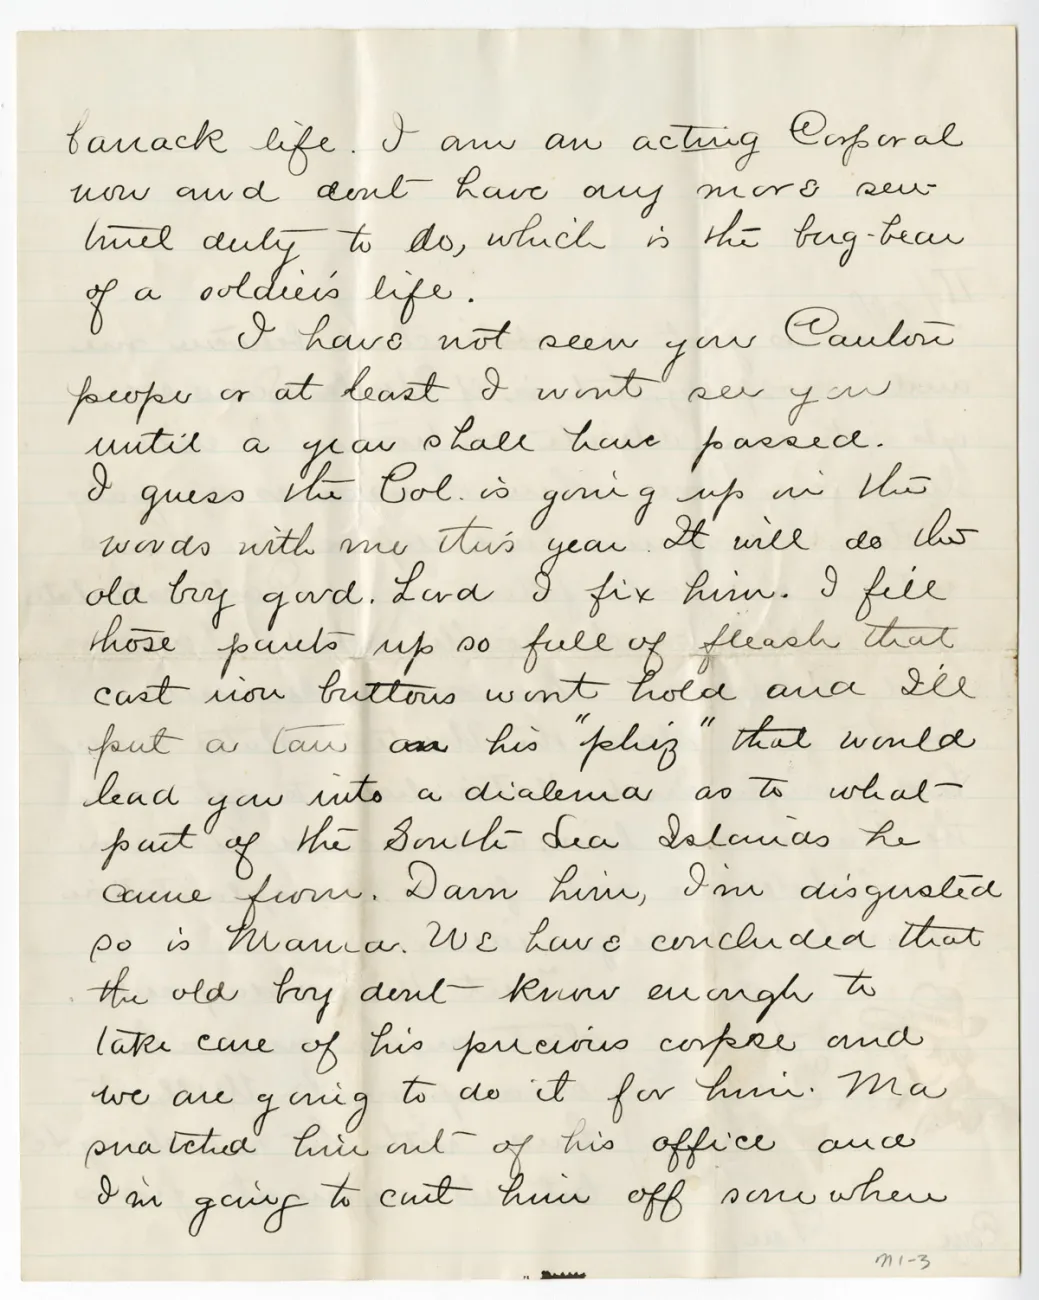 barrack life. I am an acting Corporal
now and dont have any more sen-
tinel duty to do, which is the bug-bear
of a soldier's life.
I have not seen you Canton
people or at least I wont see you
until a year shall have passed.
I guess the Col. is going up in the
woods with me this year. It will do the
old boy good. Lord I fix him. I fill
those pants up so full of fleash that
cast iron buttons wont hold and I'll
put a tan on his "phiz" that would
lead you into a dialema as to what
part of the South Sea Islands he
came from. Darn him, I'm disgusted
so is Mama. We have concluded that
the old boy dont know enough to
take care of his precious corpse and
we are going to do it for him. Ma
snatched him out of his office and
I'm going to cart him off somewhere
M1-3